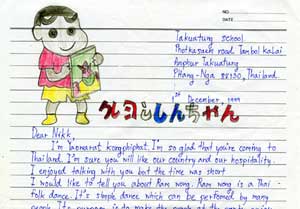 NO.
DATE
Takuatung School
Phetkasaem road Tambol Kalai
Amphur Takuatung
Phang-Nga 82130, Thailand.
1st December, 1999
クレヨンしんちゃん
Dear Nikk,
I'm Taonarat Kongphiphat. I'm so glad that you're coming to
Thailand. I'm sure you will like our country and our hospitality.
I enjoyed talking with you but the time was short
I would like to tell you about Ram wong. Ram wong is a Thai
folk dance. It's simple dance which can be performed by many
people. It's purpose is to make the people at the party enjoy